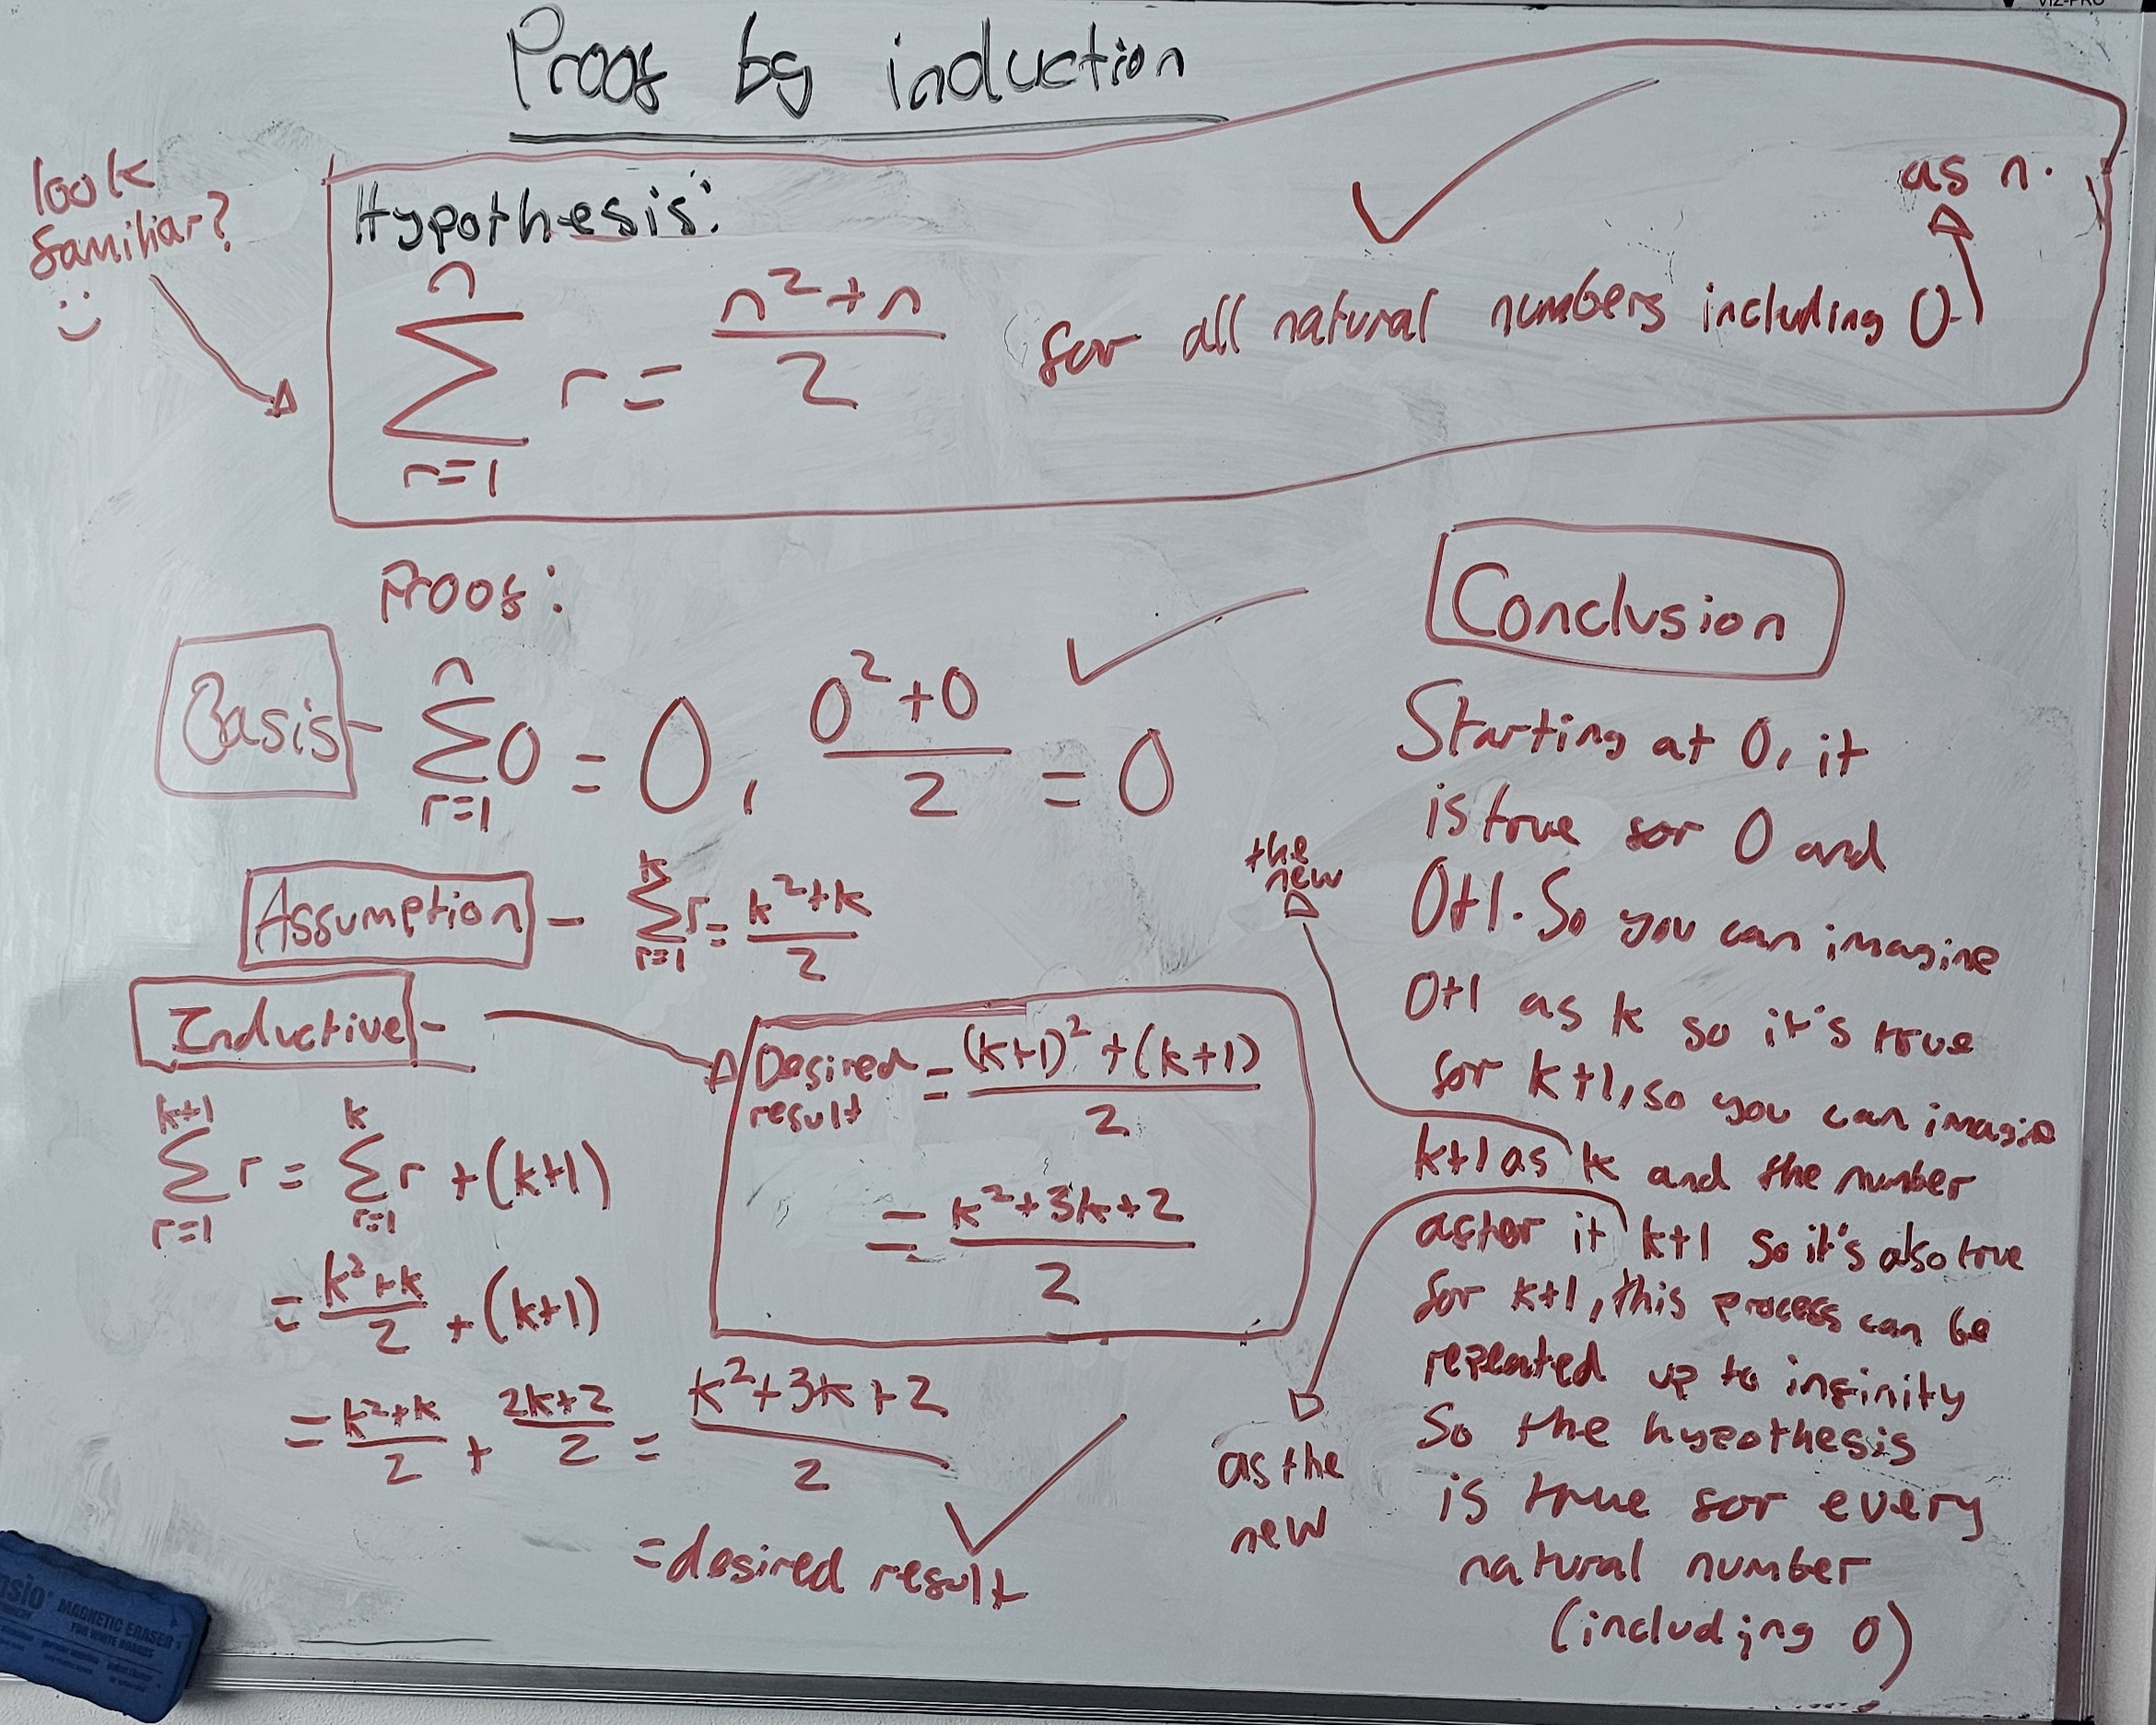 VIZ-PRO
Proof by induction
look
familiar?
:)
Hypothesis:
n
∑ r = (n²+n)/2 for all natural numbers including 0 as n.
r=1
Proof:
Basis -
n
∑ 0 = 0, (0²+0)/2 = 0
r=1
Assumption -
k
∑ r = (k²+k)/2
r=1
Inductive -
k+1 k
∑ r = ∑ r + (k+1)
r=1 r=1
= (k²+k)/2 + (k+1)
= (k²+k)/2 + (2k+2)/2 = (k²+3k+2)/2
= desired result
Desired result = ((k+1)²+(k+1))/2
= (k²+3k+2)/2
Conclusion
Starting at 0, it
is true for 0 and
0+1. So you can imagine
0+1 as k so it's true
for k+1, so you can imagine
k+1 as k and the number
after it k+1 so it's also true
for k+1, this process can be
repeated up to infinity
So the hypothesis
is true for every
natural number
(including 0)
the
new
as the
new
MAGNETIC ERASER
FOR WHITE BOARDS